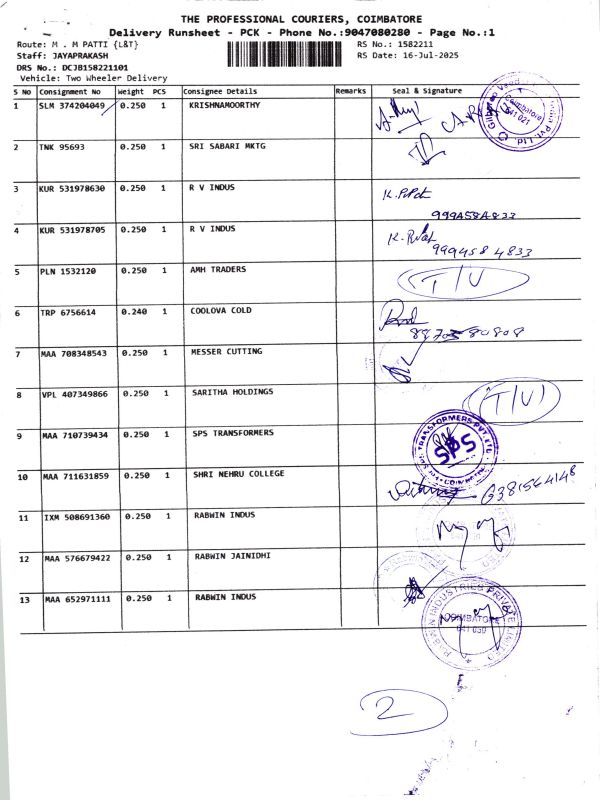 THE PROFESSIONAL COURIERS, COIMBATORE
Delivery Runsheet - PCK - Phone No.:9047080280 - Page No.:1
Route: M . M PATTI {L&T}
RS No.: 1582211
Staff: JAYAPRAKASH
RS Date: 16-Jul-2025
DRS No.: DCJB158221101
Vehicle: Two Wheeler Delivery
S No Consignment No Weight PCS Consignee Details Remarks Seal & Signature
1 SLM 374204049 0.250 1 KRISHNAMOORTHY
Coimbatore
641 021
2 TNK 95693 0.250 1 SRI SABARI MKTG
3 KUR 531978630 0.250 1 R V INDUS
9994584833
4 KUR 531978705 0.250 1 R V INDUS
9994584833
5 PLN 1532120 0.250 1 AMH TRADERS T/U
6 TRP 6756614 0.240 1 COOLOVA COLD
7 MAA 708348543 0.250 1 MESSER CUTTING
8 VPL 407349866 0.250 1 SARITHA HOLDINGS T/U
9 MAA 710739434 0.250 1 SPS TRANSFORMERS
TRANSFORMERS PVT. LTD.
SPS
COIMBATORE
10 MAA 711631859 1 0.250 SHRI NEHRU COLLEGE 6381564148
11 IXM 508691360 0.250 1 RABWIN INDUS
12 MAA 576679422 0.250 1 RABWIN JAINIDHI
13 MAA 652971111 0.250 1 RABWIN INDUS
RABWIN INDUSTRIES PRIVATE LIMITED
COIMBATORE
641 030
2